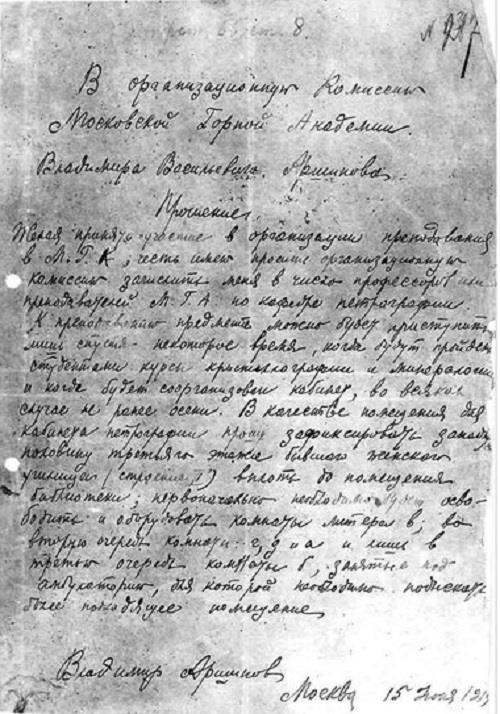 8.
В организационную Комиссию
Московской Горной Академии.
Владимира Васильевича Аршинова
Прошение.
Желая принять участие в организации преподавания
в М. Г. К, честь имею просить организационную
комиссию зачислить меня в число профессоров или
преподавателей М. Г. А. по кафедре петрографии.
К преподаванию предмета можно будет приступить
лишь спустя некоторое время, когда будут пройдены
студентами курсы кристаллографии и минералогии
и когда будет соорганизован кабинет, во всяком
случае не ранее осени. В качестве помещения для
кабинета петрографии прошу зафиксировать западн.
половину третьяго этажа бывшего женского
училища (строение I) вплоть до помещения
библиотеки; первоначально необходимо осво-
бодить и оборудовать комнаты литера в; во
вторую очередь комнаты г, д и а и лишь в
третью очередь комнаты б, занятые под
амбулаторию, для которой необходимо подыскать
более подходящее помещение
Владимир Аршинов
Москва 15 1919